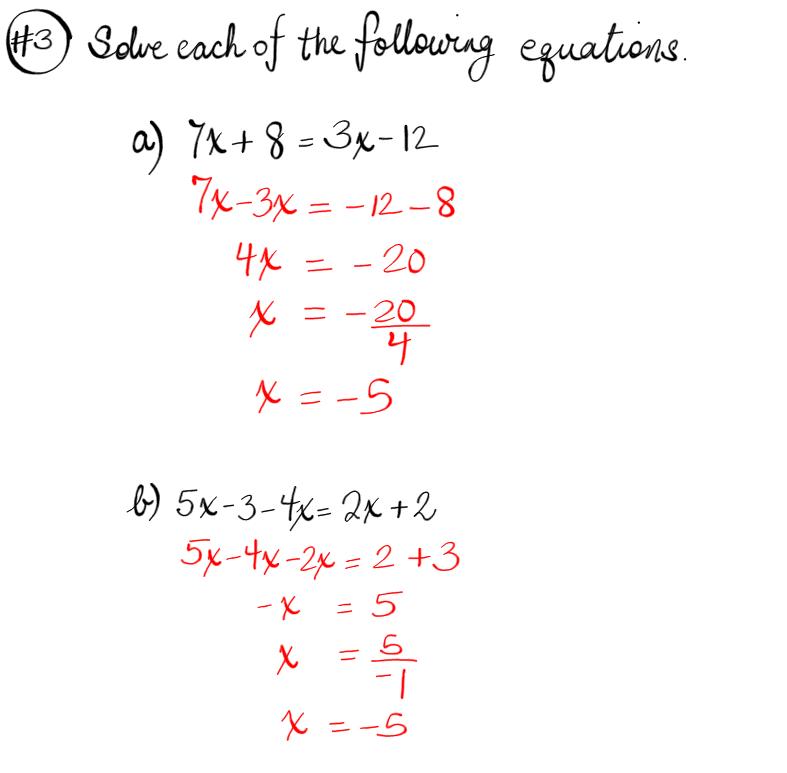 #3 Solve each of the following equations.
a) 7x + 8 = 3x - 12
7x - 3x = -12 - 8
4x = -20
x = -20/4
x = -5
b) 5x - 3 - 4x = 2x + 2
5x - 4x - 2x = 2 + 3
-x = 5
x = 5/-1
x = -5